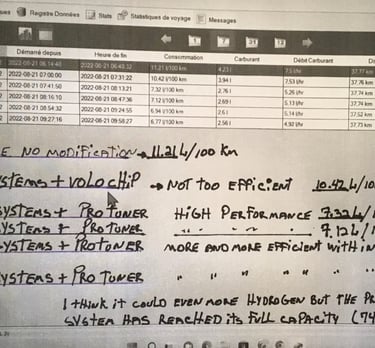 ques Registre Données Stats Statistiques de voyage Messages
1 7 31 12
Démarré depuis Heure de fin Consommation Carburant Débit Carburant Di
2022-08-21 06:14:48 2022-08-21 06:40:32 11,21 l/100 km 4.23 l 7,5 l/hr 37,77 km
2 2022-08-21 07:00:00 2022-08-21 07:31:22 10,42 l/100 km 3.94 l 7,53 l/hr 37,76 km
2 2022-08-21 07:41:50 2022-08-21 08:13:21 7,32 l/100 km 2.76 l 5,26 l/hr 37,74 km
2 2022-08-21 08:16:10 2022-08-21 08:47:36 7,12 l/100 km 2.69 l 5,13 l/hr 37,74 km
2 2022-08-21 08:54:32 2022-08-21 09:24:55 6,94 l/100 km 2.6 l 5,14 l/hr 37,52 km
2 2022-08-21 09:27:16 2022-08-21 09:58:27 6,77 l/100 km 2.56 l 4,92 l/hr 37,73 km
E NO MODIFICATION → 11.21 L/100 KM
YSTEMS + VOLOCHIP → NOT TOO EFFICIENT 10.42 L/10
SYSTEMS + PROTUNER HIGH PERFORMANCE 7.32 L/1
SYSTEMS + PROTUNER " " " 7.12 L/1
SYSTEMS + PROTONER MORE AND MORE EFFICIENT WITH IN
SYSTEMS + PRO TUNER " " " " " "
I THINK IT COULD EVEN MORE HYDROGEN BUT THE PR
SYSTEM HAS REACHED ITS FULL CAPACITY (74